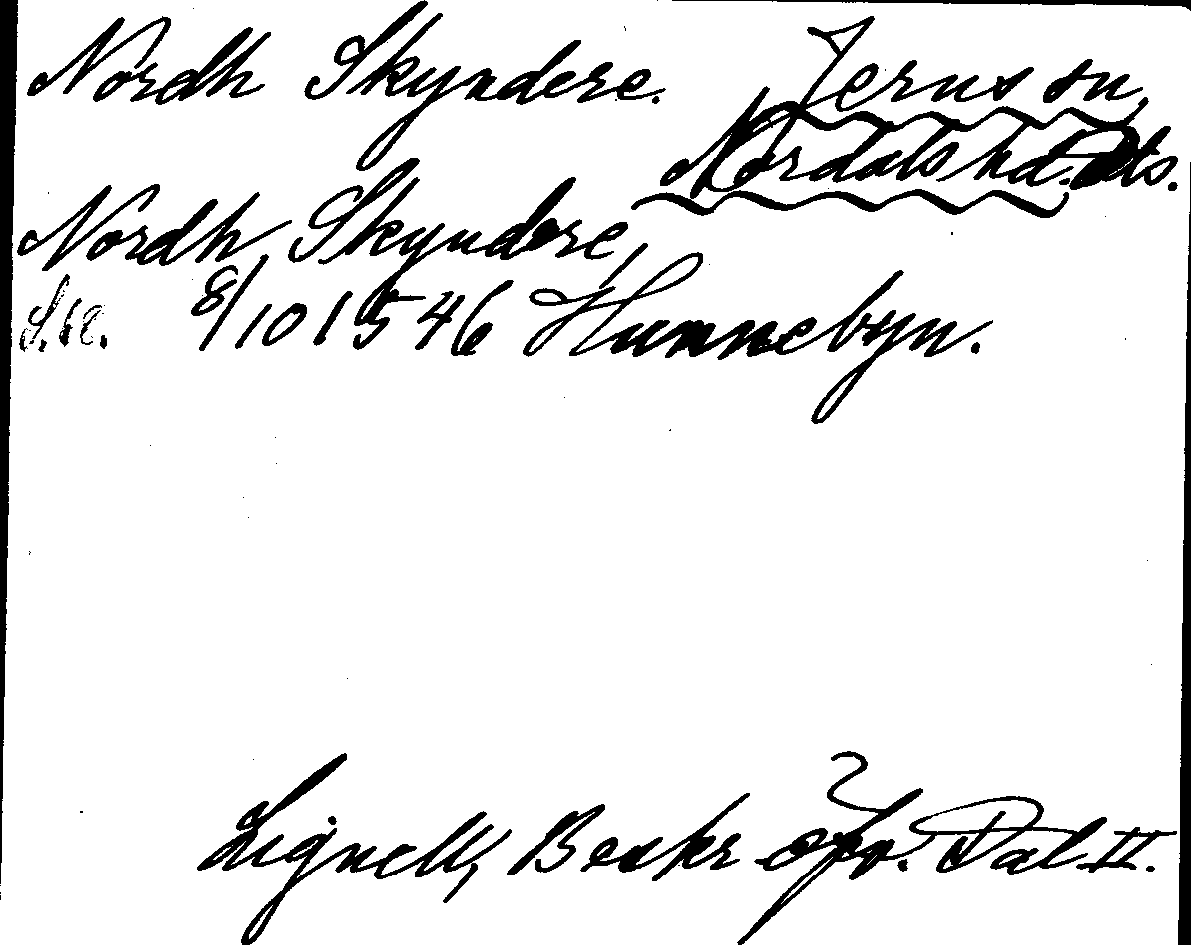 Nordh Skyndere. Jerns sn,
Nordals hd. Dls.
Nordh Skyndere,
S. 52. 8/10 1546 Hunnebyn.
Lignell, Beskr öfv. Dal II.